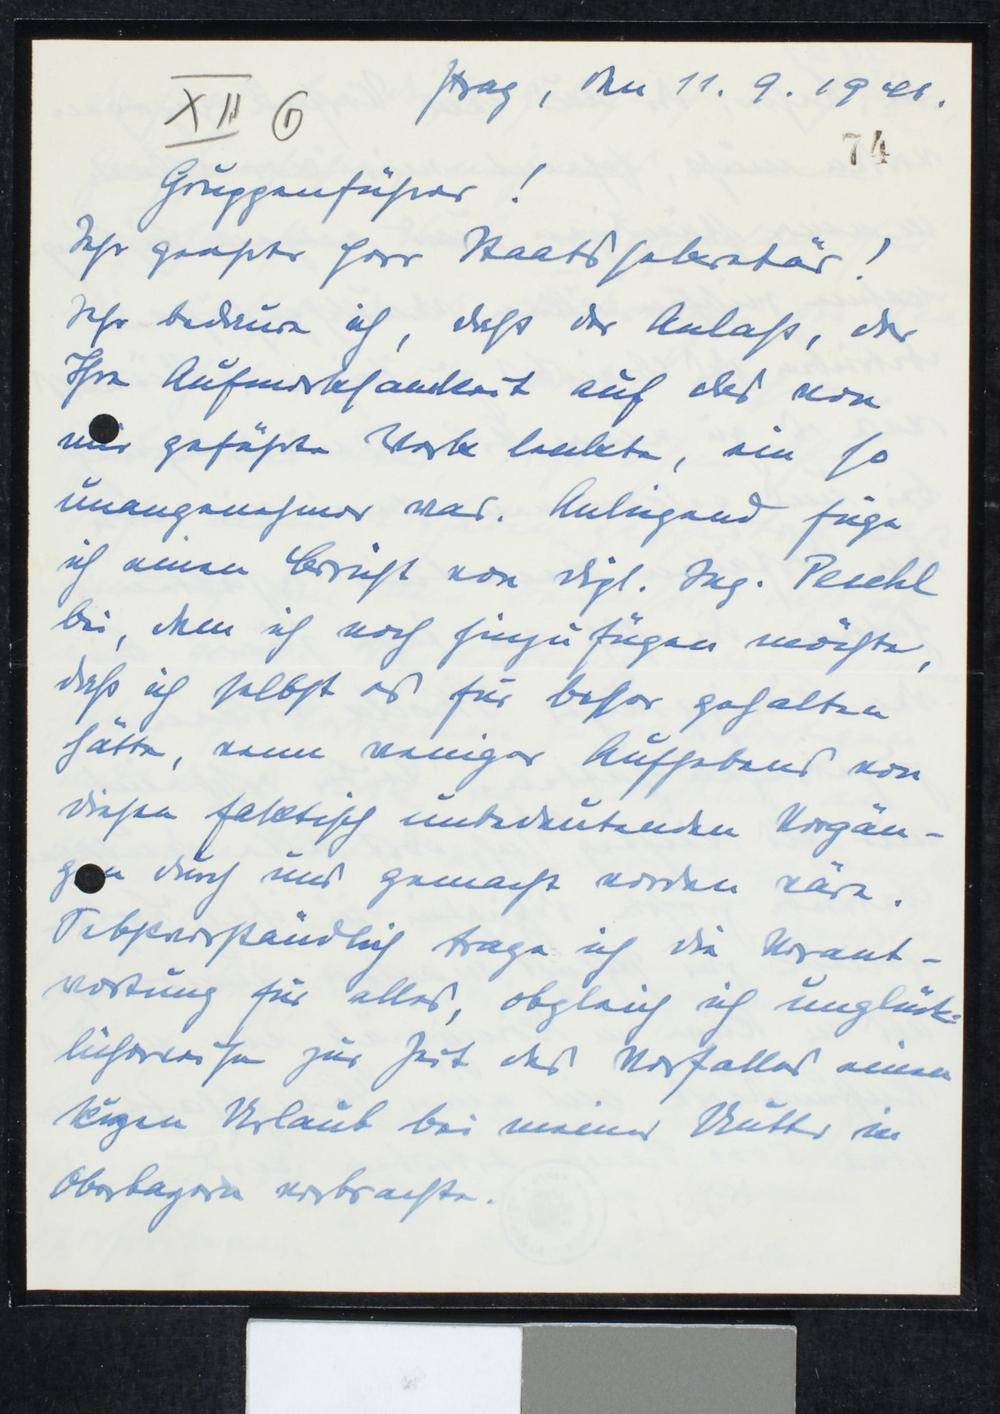 XII 6
Prag, den 11. 9. 1941.
74
Gruppenführer!
Sehr geehrter Herr Staatssekretär!
Sehr bedaure ich, daß der Anlaß, der
Ihre Aufmerksamkeit auf das von
mir geführte Werk lenkte, ein so
unangenehmer war. Anliegend füge
ich einen Bericht von Dipl. Ing. Peschl
bei, dem ich noch hinzufügen möchte,
daß ich selbst es für besser gehalten
hätte, wenn weniger Aufhebens von
diesen faktisch unbedeutenden Vorgän-
gen durch uns gemacht worden wäre.
Selbstverständlich trage ich die Verant-
wortung für alles, obgleich ich unglück-
licherweise zur Zeit des Vorfalles einen
kurzen Urlaub bei meiner Mutter in
Oberbayern verbrachte.